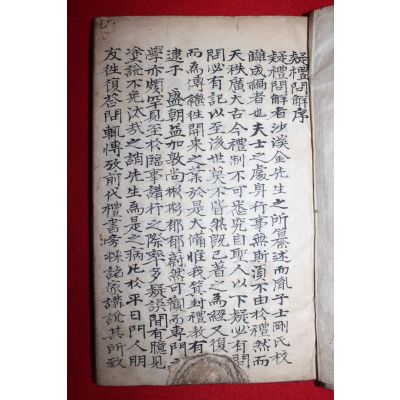 疑禮問解序
疑禮問解者沙溪金先生之所纂述而胤子士剛氏校
讎成編者也夫士之處身行事無斯須不由於禮然而
天秩廣大古今禮制不可悉究自聖人以下疑必有問
問必有記以至後世莫不皆然既已著之為經又復
而為傳繼往開來之業於是大備惟我箕封禮教有
逮于 盛朝益加敦尚彬彬郁郁蔚然可觀而專門
學亦頗罕見至於臨事講行之際率多疑誤間有臆見
塗說不免汰哉之誚先生為是之病比於平日門人朋
友往復答問輒博攷前代禮書旁採諸家講說其所致